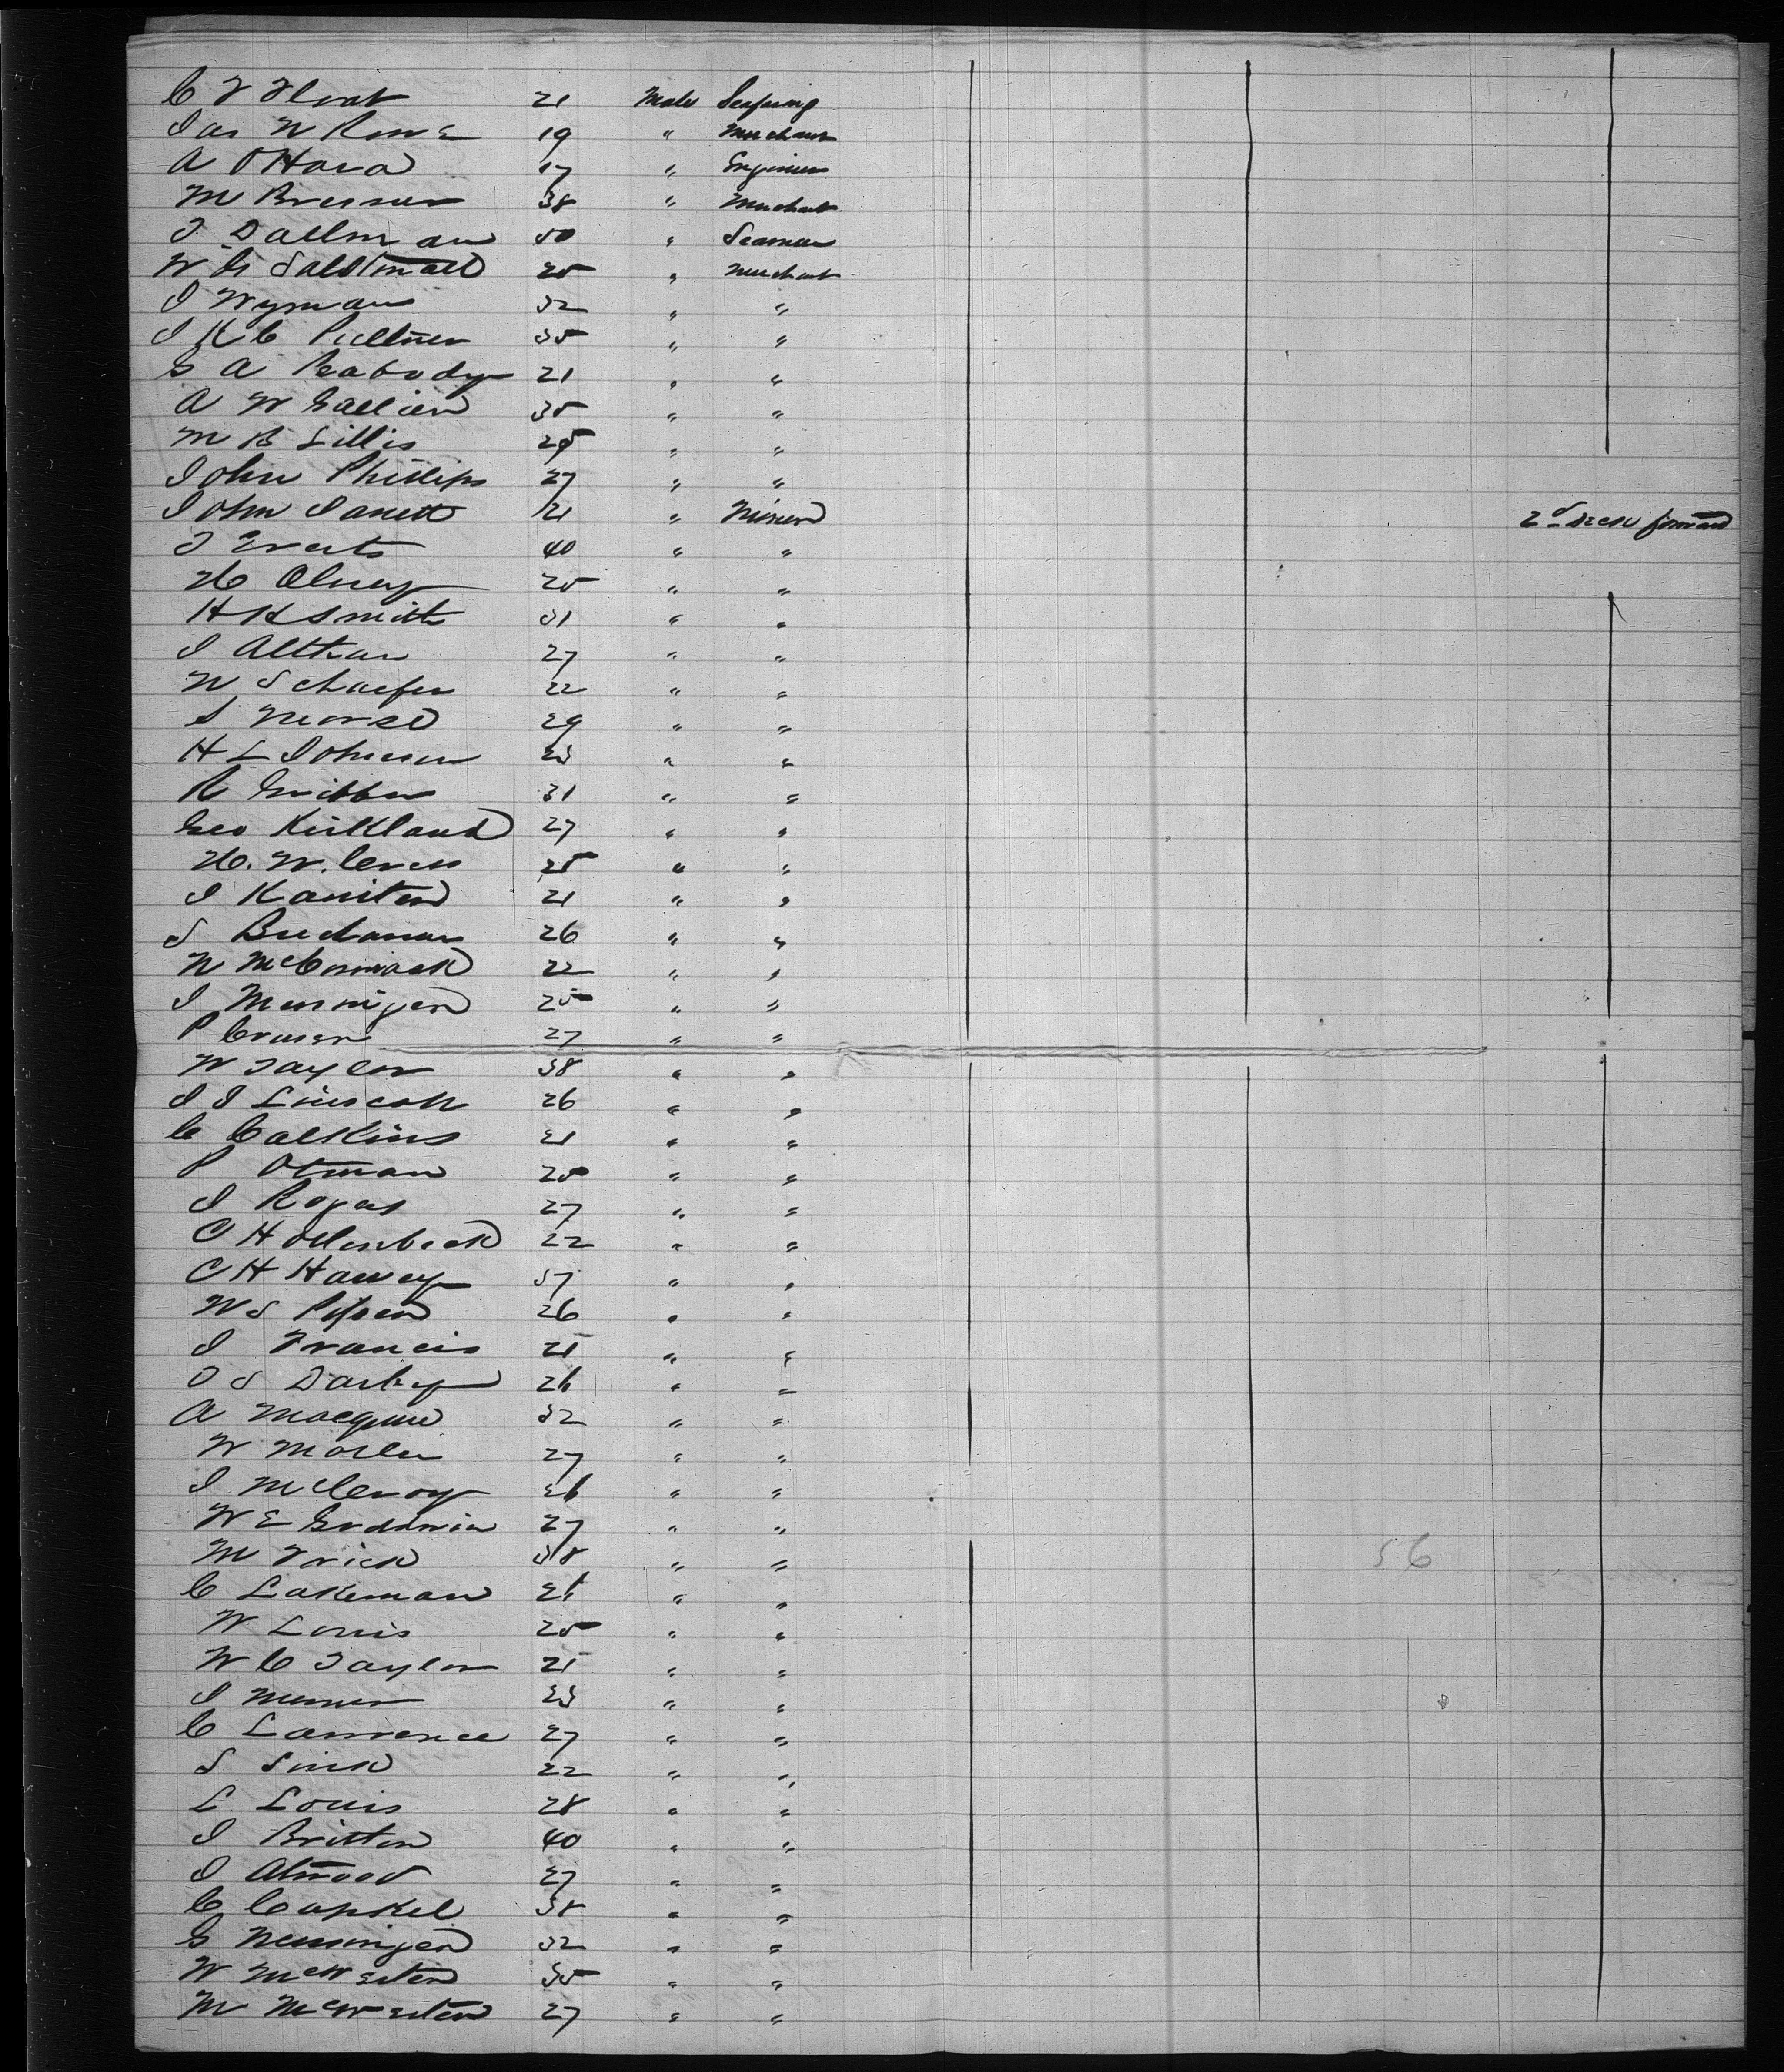 C F Float 21 Male Seafaring
Jas W Rowe 19 " Merchant
A O'Hara 17 " Engineer
M Bresnen 38 " Merchant
T Dallman 50 " Seaman
W G Saltsmall 25 " Merchant
J Wyman 32 " "
J K C Pullmer 35 " "
G A Peabody 21 " "
A W Gallier 35 " "
M B Lillis 25 " "
John Phillips 27 " "
John Janett 21 " Miner 2d Deck forward
T Evarts 40 " "
H Olney 25 " "
H K Smith 31 " "
J Altman 27 " "
W Schaefer 22 " "
S Morse 29 " "
H L Johnson 23 " "
R Gribben 31 " "
Geo Kirkland 27 " "
H. W. Cross 25 " "
J Kaniten 21 " "
S Buchanan 26 " "
N McCormack 22 " "
J Menninger 25 " "
P Cronen 27 " "
W Taylor 38 " "
J J Linscott 26 " "
C Calkins 21 " "
P Otman 25 " "
J Rogas 27 " "
C Hollenbeck 22 " "
C H Harvey 37 " "
W S Pepen 26 " "
J Francis 21 " "
O S Darby 26 " "
A Macquire 32 " "
W Morler 27 " "
J McCleroy 26 " "
W E Godwin 27 " "
M Frick 38 " "
C Lakeman 26 " "
W Louis 25 " "
56
W C Taylor 21 " "
J 23 " "
C Lawrence 27 " "
S Sink 22 " "
L Louis 28 " "
J Britton 40 " "
J Atwood 27 " "
C Cankel 38 " "
G Menninger 32 " "
W McWerter 35 " "
M McWerter 27 " "